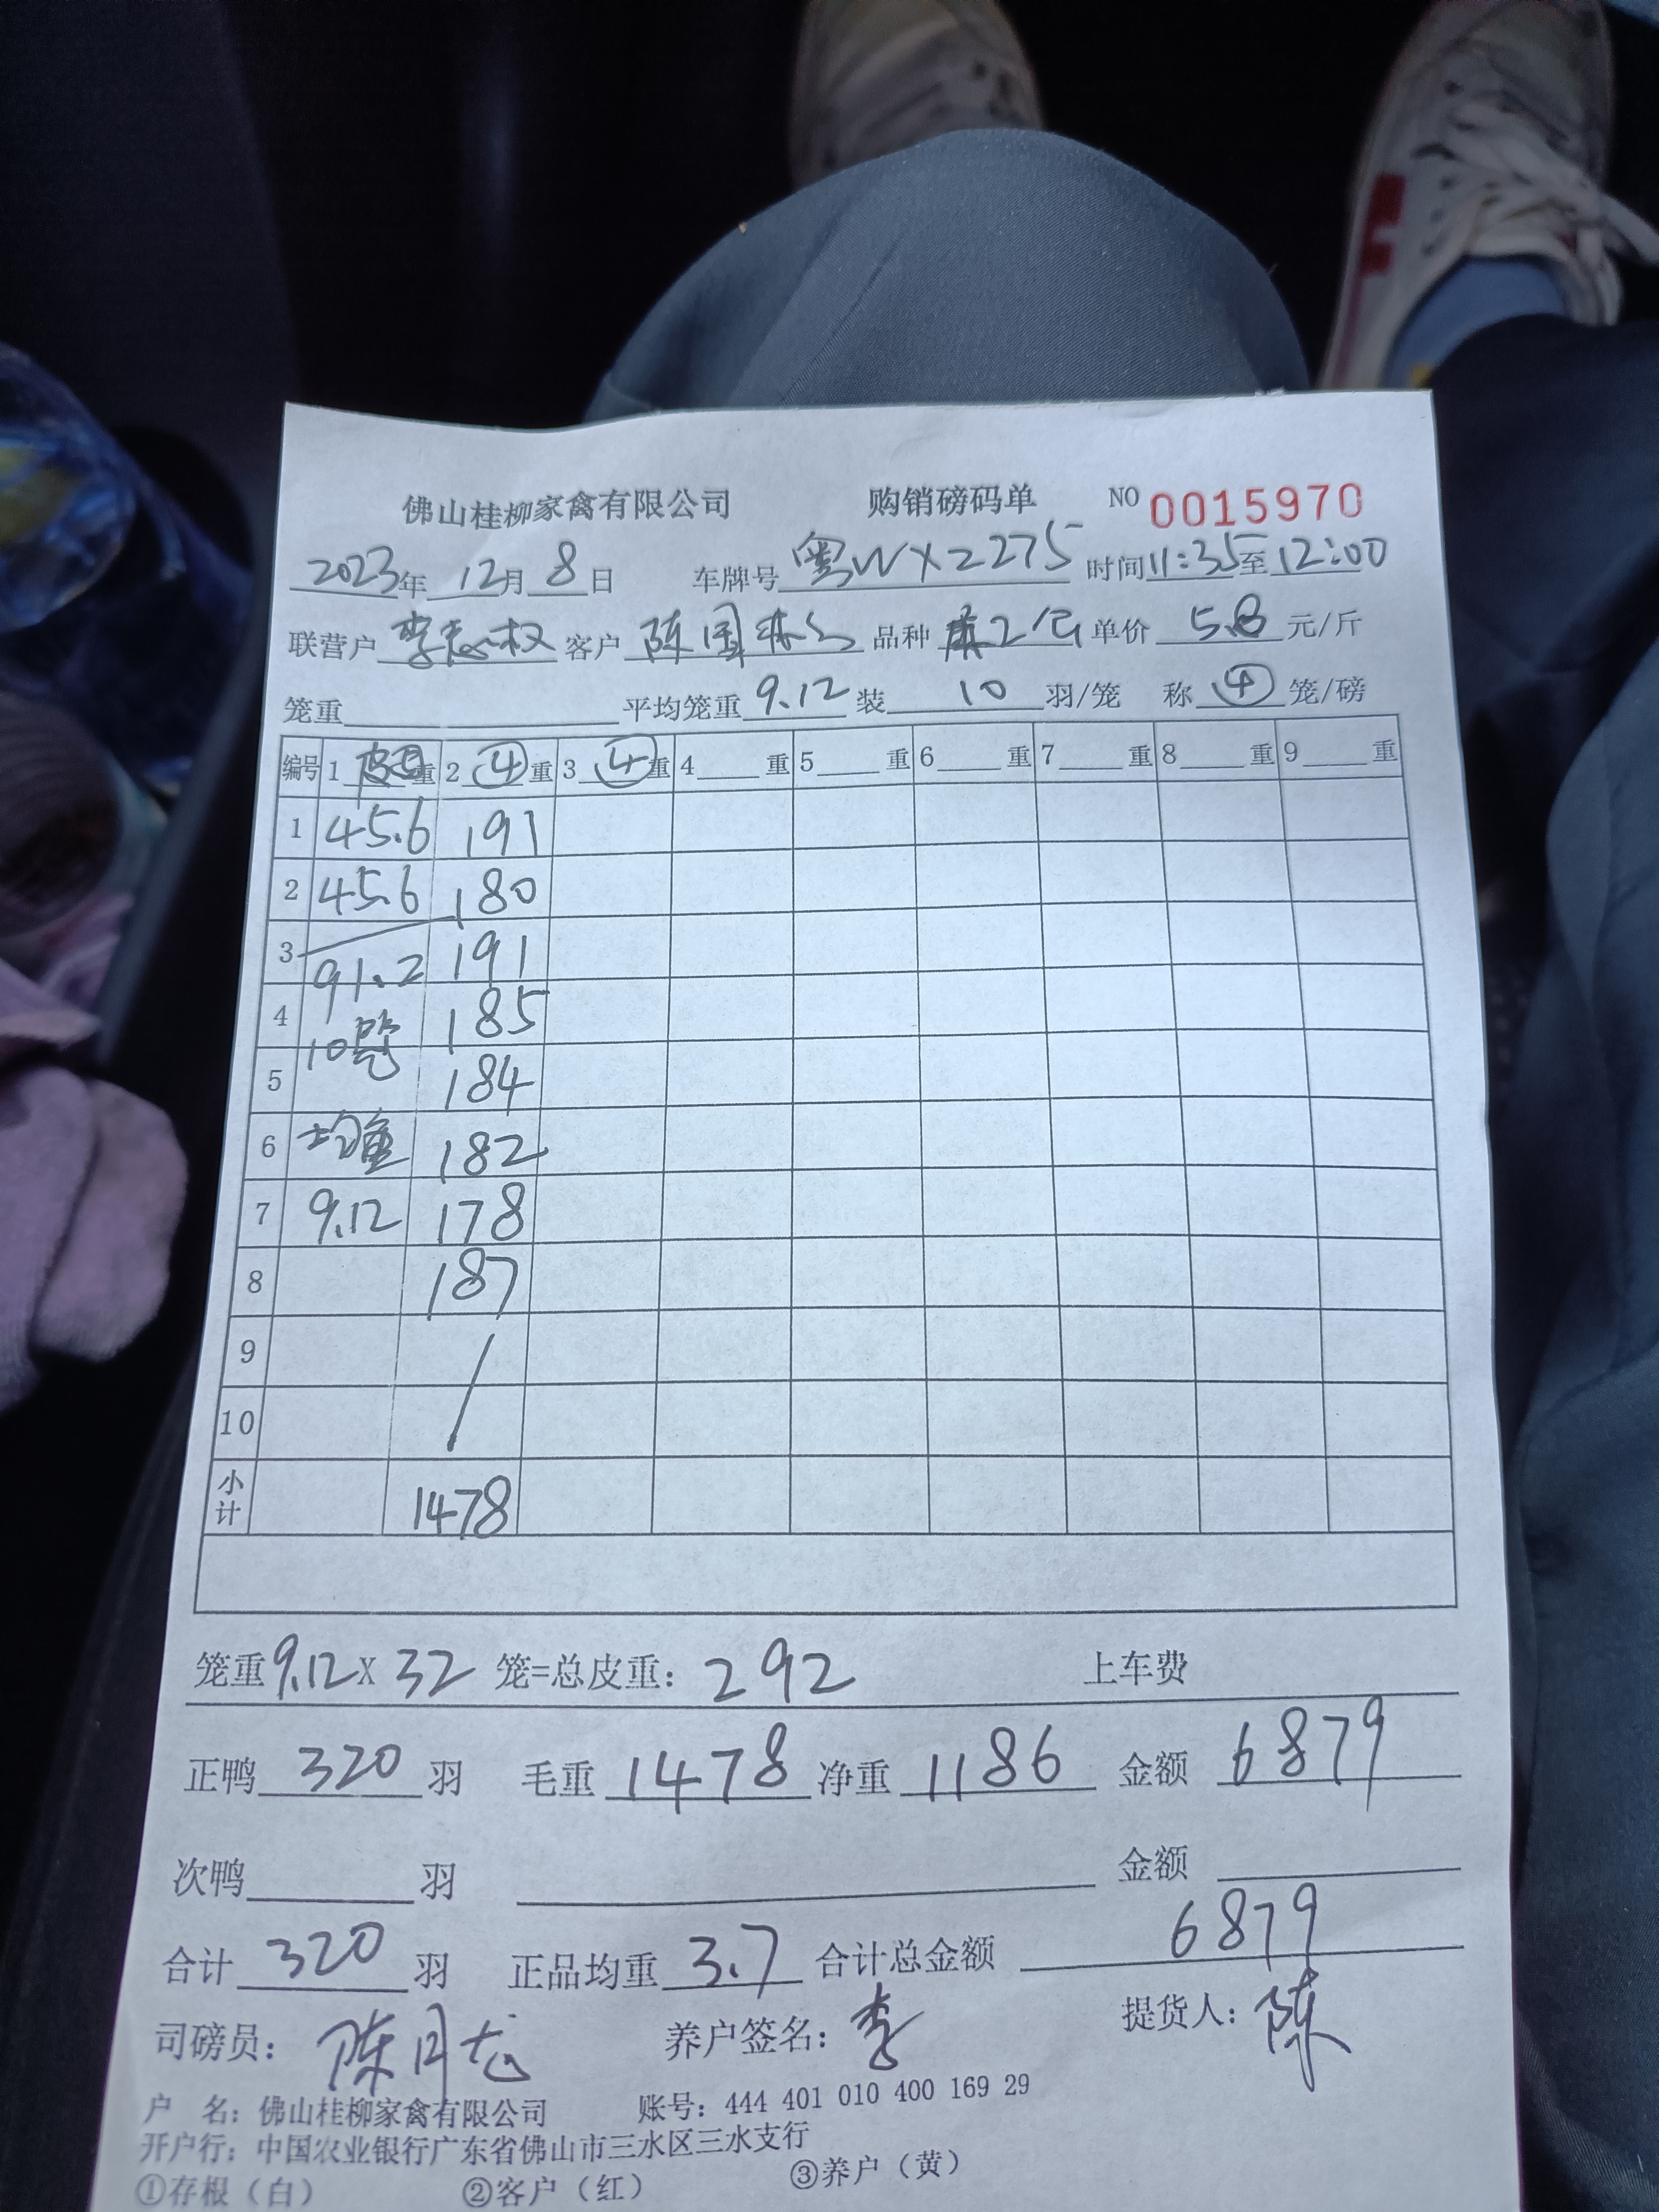 佛山桂柳家禽有限公司 购销磅码单 NO 0015970
2023年 12月 8日 车牌号 粤WX2275 时间 11:35至12:00
联营户 李志权 客户 陈国 品种 单价 5.8 元/斤
笼重 平均笼重 9.12 装 10 羽/笼 称 ④ 笼/磅
编号 1 皮重 2 ④ 重 3 ④ 重 4 重 5 重 6 重 7 重 8 重 9 重
1 45.6 191
2 45.6 180
3 91.2 191
4 10笼 185
5 184
6 均重 182
7 9.12 178
8 187
9 /
10
小计 1478
笼重9.12X 32 笼=总皮重: 292 上车费
正鸭 320 羽 毛重 1478 净重 1186 金额 6879
次鸭 羽 金额
合计 320 羽 正品均重 3.7 合计总金额 6879
司磅员: 陈月龙 养户签名: 李 提货人: 陈
户 名: 佛山桂柳家禽有限公司 账号: 444 401 010 400 169 29
开户行: 中国农业银行广东省佛山市三水区三水支行
①存根（白） ②客户（红） ③养户（黄）